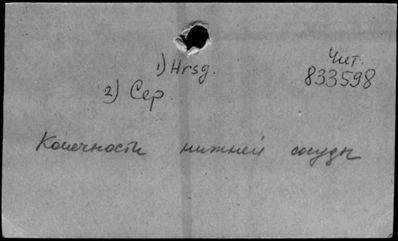 1) Hrsg.
Чит.
833598
2) Сер.
Конечности нижней сосуды